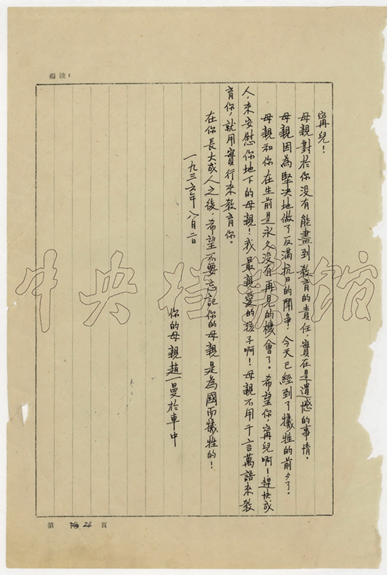 寗兒！
母親對於你沒有能盡到教育的責任，實在是遺憾的事情。
母親因為堅决地做了反滿抗日的鬥争，今天已經到了犧牲的前夕了。
母親和你在生前是永久沒有再見的機會了。希望你，寗兒啊！趕快成
人，來安慰你地下的母親！我最親愛的孩子啊！母親不用千言萬語來教
育你，就用實行來教育你。
在你長大成人之後，希望不要忘記你的母親是為國而犧牲的！
一九三六年八月二日
你的母親趙一曼於車中
第
頁
中央檔案館